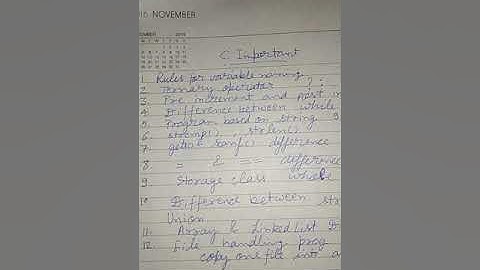 016 NOVEMBER
C Important
1. Rules for variable naming
2. Ternary operator ? :
3. Pre increment and post in
4. Difference between while
5. Program based on string
6. strcmp(), strlen()
7. gets & scanf() difference
8 = & == difference
9. Storage class whole
10 Difference between str
Union
11. Array & Linked List D
12. File handling prog
copy one file into a